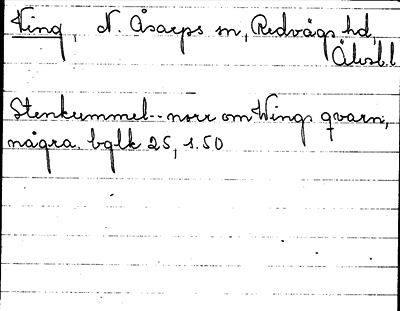 Ving, N. Åsarps sn, Redvägs hd,
Älvsb. l
Stenkummel -- norr om Wings qvarn,
några. bglk 25, s. 50